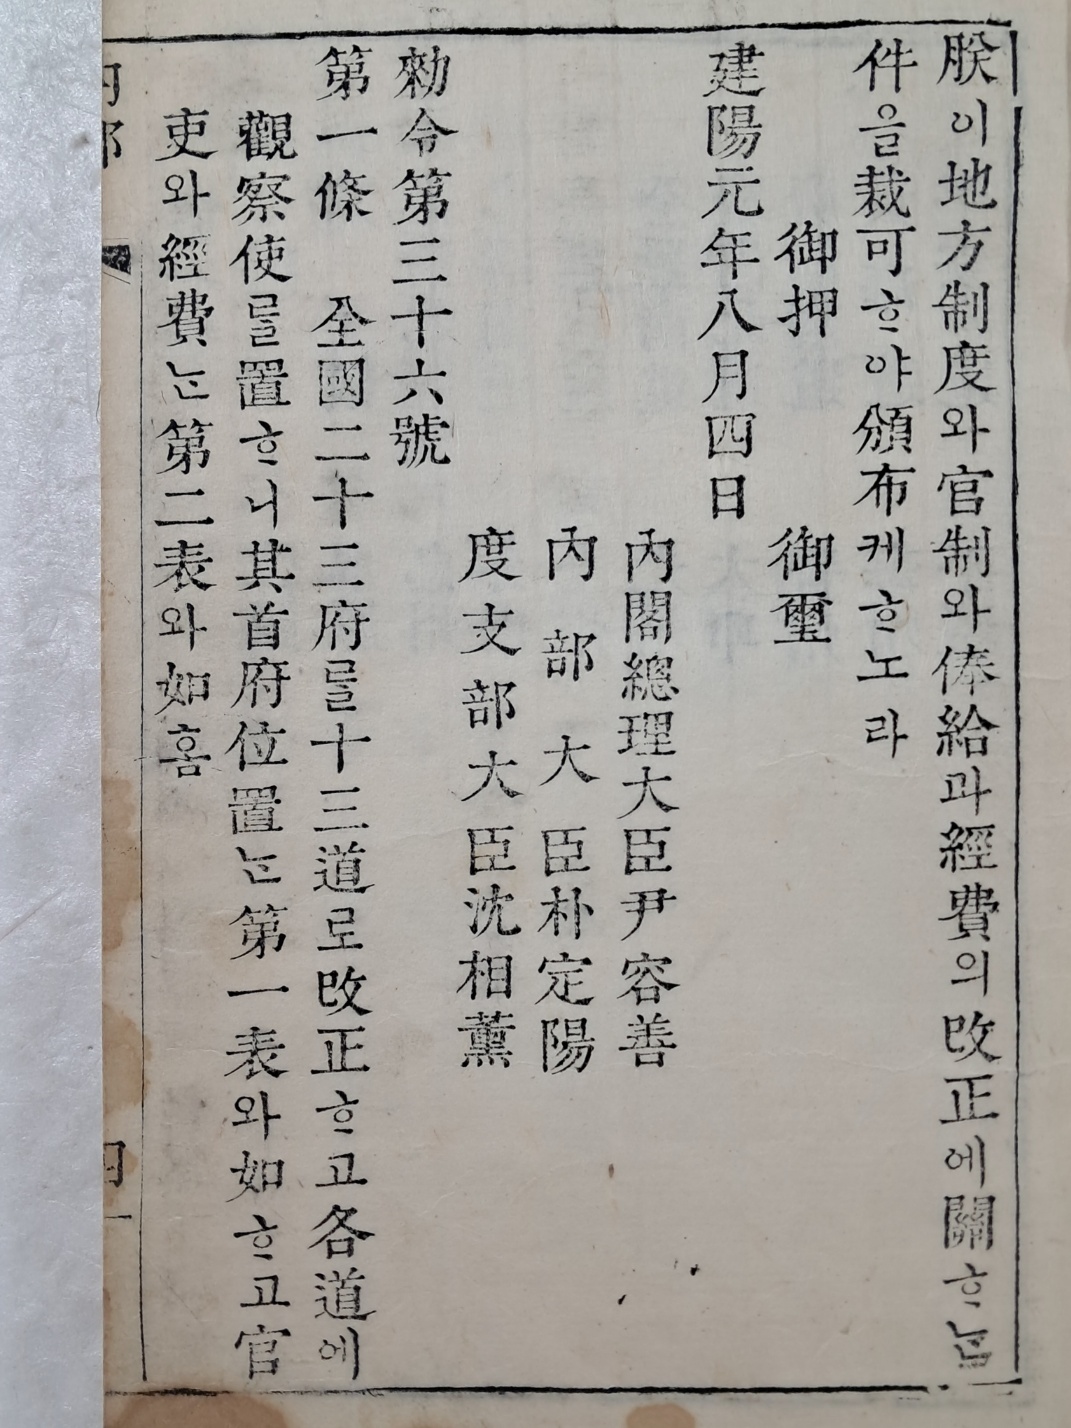 朕이地方制度와官制와俸給과經費의改正에關ᄒᆞᄂᆞᆫ
件을裁可ᄒᆞ야頒布케ᄒᆞ노라
御押 御璽
建陽元年八月四日
內閣總理大臣尹容善
內部大臣朴定陽
度支部大臣沈相薰
勅令第三十六號
第一條 全國二十三府를十三道로改正ᄒᆞ고各道에
觀察使를置ᄒᆞ니其首府位置ᄂᆞᆫ第一表와如ᄒᆞ고官
吏와經費ᄂᆞᆫ第二表와如홈